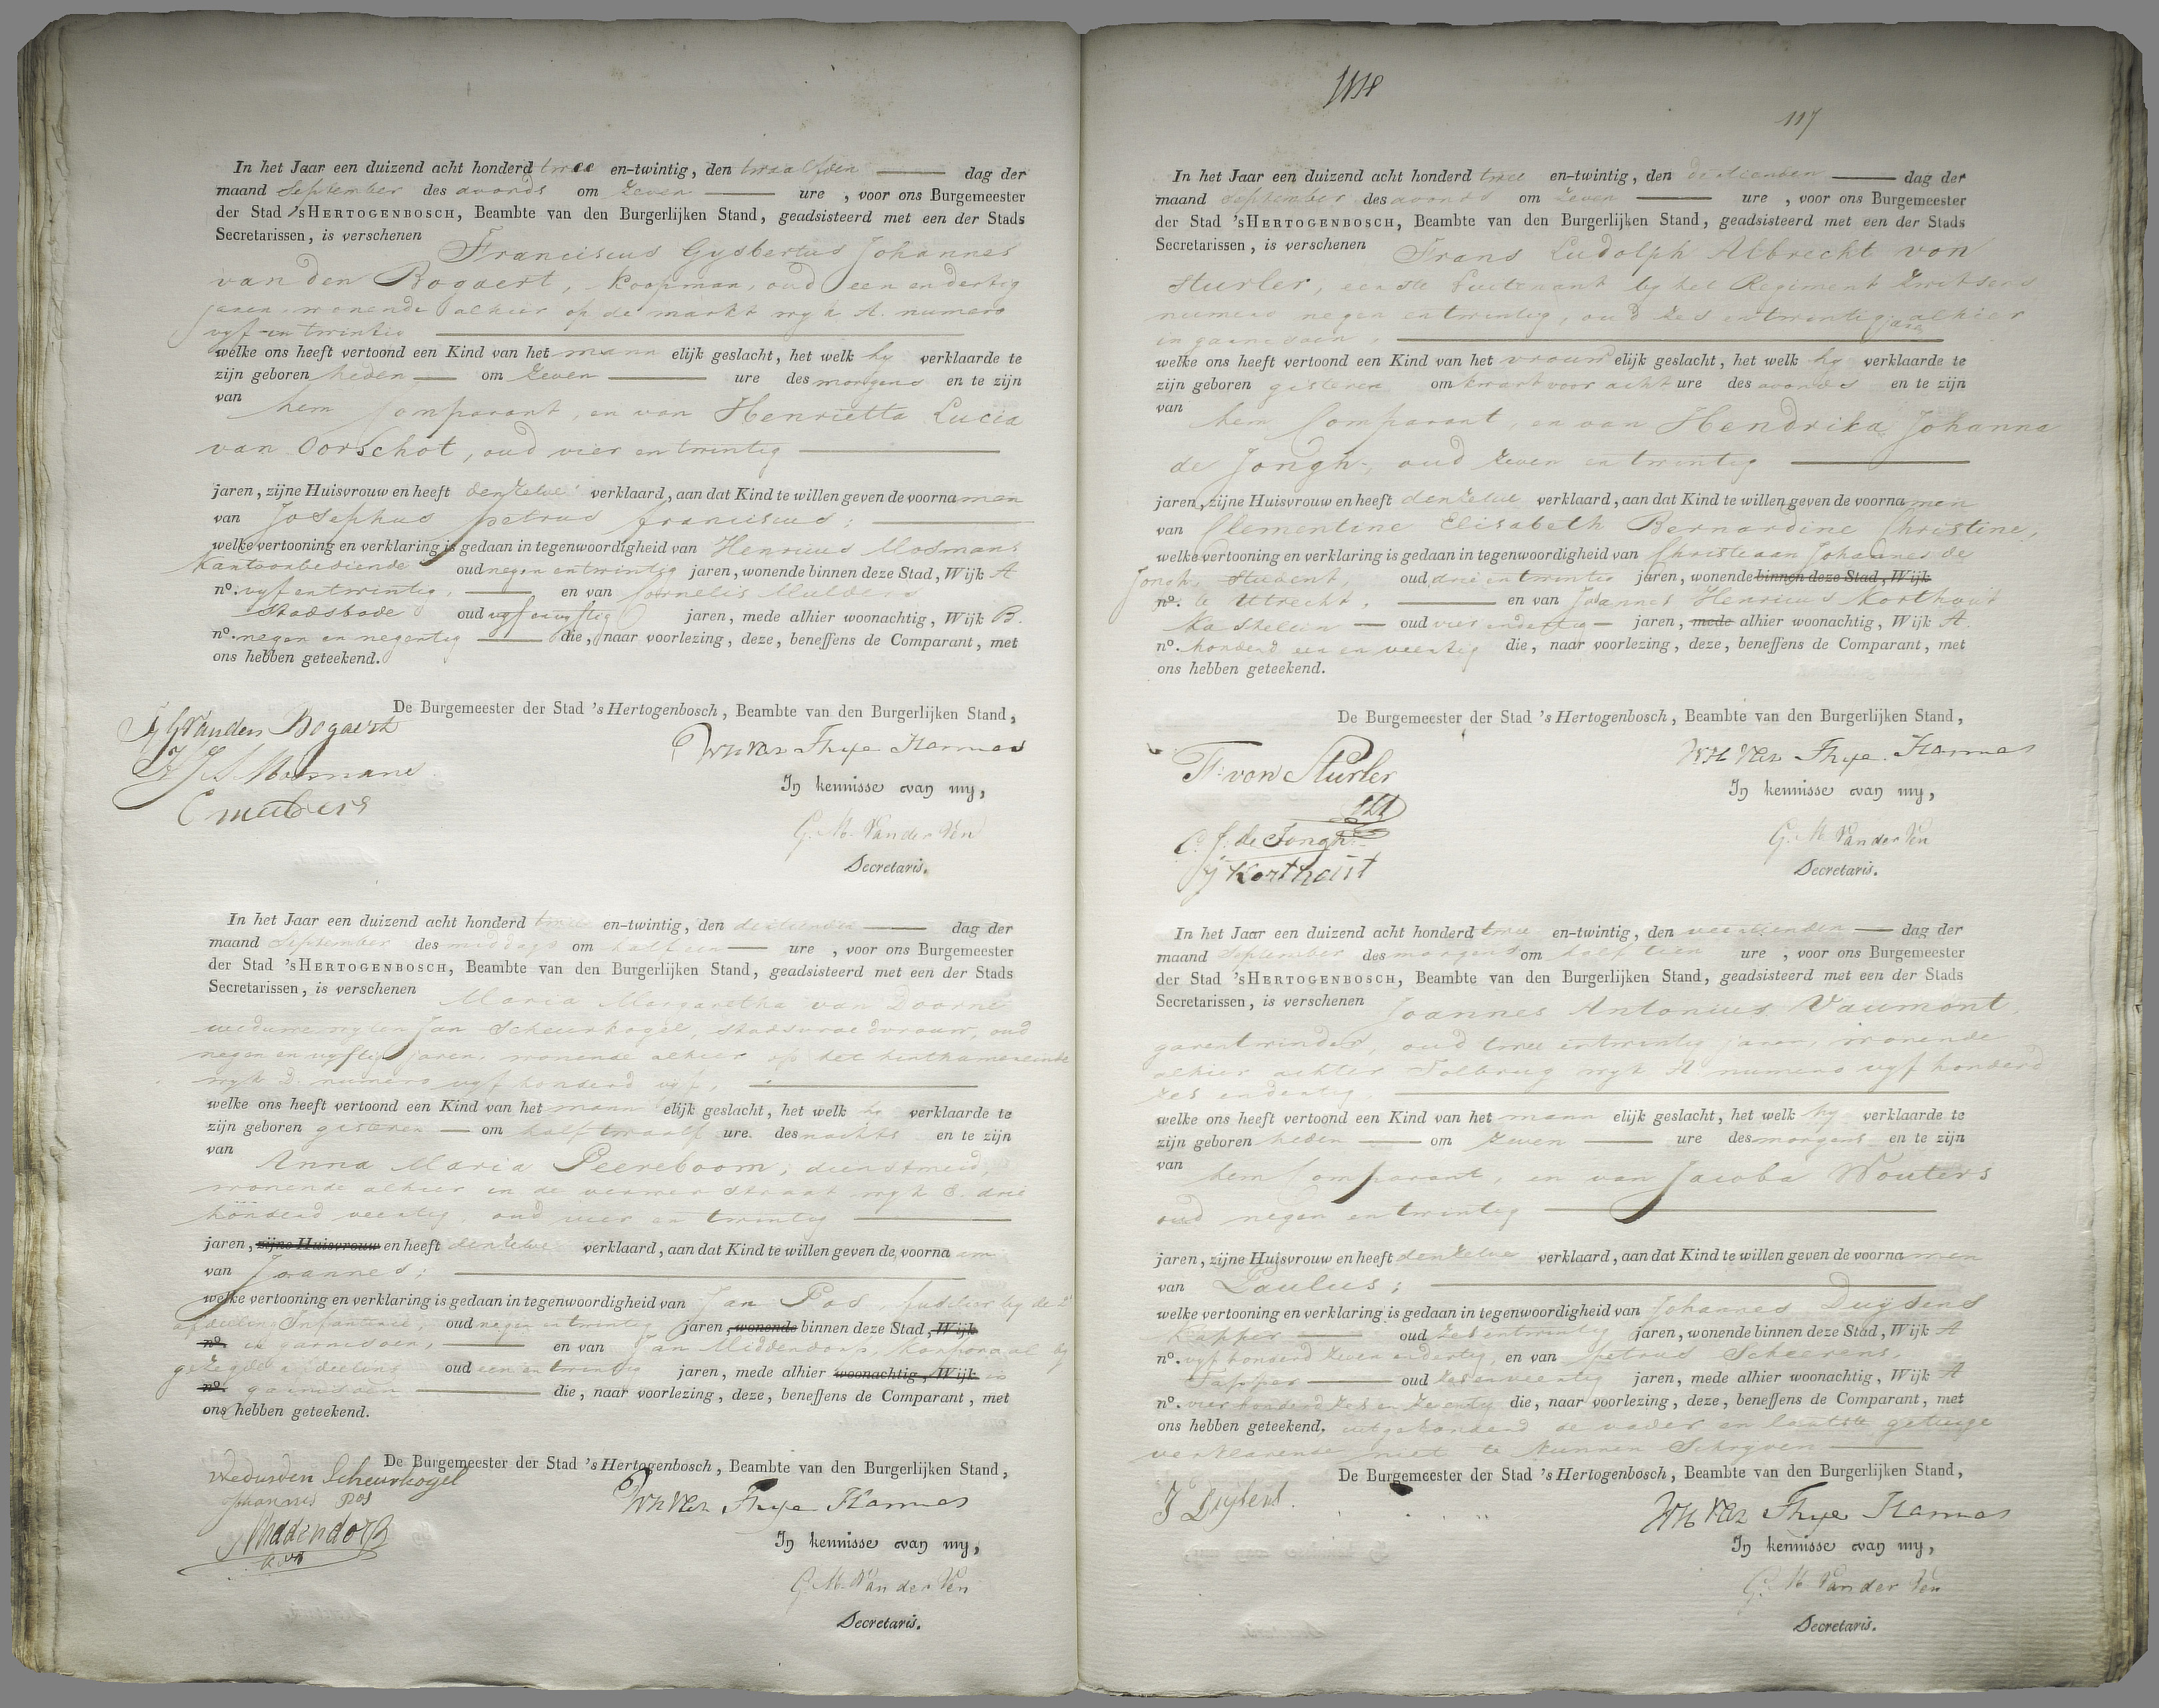 In het Jaar een duizend acht honderd twee en-twintig, den twaalfden dag der
maand September des avonds om zeven ure , voor ons Burgemeester
der Stad 'sHERTOGENBOSCH, Beambte van den Burgerlijken Stand, geadsisteerd met een der Stads
Secretarissen, is verschenen Franciscus Gysbertus Johannes
van den Bogaert, koopman, oud een en dertig
jaren, wonende alhier op de markt wyk A. numero
vyf en twintig
welke ons heeft vertoond een Kind van het mann elijk geslacht, het welk hy verklaarde te
zijn geboren heden om zeven ure des morgens en te zijn
van hem Comparant, en van Henrietta Lucia
van Oorschot, oud vier en twintig
jaren, zijne Huisvrouw en heeft denzelve verklaard, aan dat Kind te willen geven de voorna men
van Josephus petrus franciscus;
welke vertooning en verklaring is gedaan in tegenwoordigheid van Henricus Mosmans
Kantoorbediende oud negen entwintig jaren, wonende binnen deze Stad, Wijk A
nº. vyf entwintig, en van Cornelis Mulders
Stadsbode oud vyf envyftig jaren, mede alhier woonachtig, Wijk B.
nº. negen en negentig die, naar voorlezing, deze, beneffens de Comparant, met
ons hebben geteekend.
De Burgemeester der Stad 's Hertogenbosch, Beambte van den Burgerlijken Stand,
van den Bogaert
Mosmans
In kennisse van my,
G. M. Van der Ven
Secretaris.
In het Jaar een duizend acht honderd twee en-twintig, den dertienden dag der
maand September des middags om half een ure , voor ons Burgemeester
der Stad 'sHERTOGENBOSCH, Beambte van den Burgerlijken Stand, geadsisteerd met een der Stads
Secretarissen, is verschenen Maria Margaretha van Doorne
weduwe wylen Jan Scheurkogel, stadsvroedvrouw, oud
negen en vyftig jaren, wonende alhier op het hinthamereinde
wyk D. numero vyf honderd vyf,
welke ons heeft vertoond een Kind van het mann elijk geslacht, het welk hy verklaarde te
zijn geboren gisteren om half twaalf ure. des nachts en te zijn
van Anna Maria Peereboom, dienstmeid,
wonende alhier in de straat wyk drie
honderd veertig, oud vier en twintig
jaren, zijne Huisvrouw en heeft denzelve verklaard, aan dat Kind te willen geven de voorna am
van Joannes;
welke vertooning en verklaring is gedaan in tegenwoordigheid van Jan Pos, fuselier by de
afdeeling Infanterie, oud negen entwintig jaren, wonende binnen deze Stad, Wijk
nº. in garnisoen, en van Jan Middendorp, korporaal by
gezegde afdeeling oud een en twintig jaren, mede alhier woonachtig, Wijk in
nº. garnisoen die, naar voorlezing, deze, beneffens de Comparant, met
ons hebben geteekend.
De Burgemeester der Stad 's Hertogenbosch, Beambte van den Burgerlijken Stand,
Scheurkogel
Johannes Pos
Middendorp
In kennisse van my,
G. M. Van der Ven
Secretaris.
117
In het Jaar een duizend acht honderd twee en-twintig, den dertienden dag der
maand September des avonds om zeven ure , voor ons Burgemeester
der Stad 'sHERTOGENBOSCH, Beambte van den Burgerlijken Stand, geadsisteerd met een der Stads
Secretarissen, is verschenen Frans Ludolph Albrecht von
Sturler, eerste Luitenant by het Regiment Zwitsers
numero negen entwintig, oud zes entwintig jaren, alhier
in garnisoen,
welke ons heeft vertoond een Kind van het vrouw elijk geslacht, het welk hy verklaarde te
zijn geboren gisteren om kwart voor acht ure des avonds en te zijn
van hem Comparant, en van Hendrika Johanna
de Jongh, oud zeven entwintig
jaren, zijne Huisvrouw en heeft denzelve verklaard, aan dat Kind te willen geven de voorna men
van Clementine Elisabeth Bernardine Christine,
welke vertooning en verklaring is gedaan in tegenwoordigheid van Christiaan Johannes de
Jongh, Student, oud drie en twintig jaren, wonende binnen deze Stad, Wijk
nº. te Utrecht, en van Johannes Henricus Korthout
Kastelein oud vier endertig jaren, mede alhier woonachtig, Wijk A.
nº. honderd een en veertig die, naar voorlezing, deze, beneffens de Comparant, met
ons hebben geteekend.
De Burgemeester der Stad 's Hertogenbosch, Beambte van den Burgerlijken Stand,
F. von Sturler
C. J. de Jongh
Korthout
In kennisse van my,
G. M. Van der Ven
Secretaris.
In het Jaar een duizend acht honderd twee en-twintig, den veertienden dag der
maand September des morgens om half tien ure , voor ons Burgemeester
der Stad 'sHERTOGENBOSCH, Beambte van den Burgerlijken Stand, geadsisteerd met een der Stads
Secretarissen, is verschenen Joannes Antonius Vaumont,
garentwinder, oud twee entwintig jaren, wonende
alhier achter Tolbrug wyk A. numero vyf honderd
zes endertig,
welke ons heeft vertoond een Kind van het mann elijk geslacht, het welk hy verklaarde te
zijn geboren heden om zeven ure des morgens en te zijn
van hem Comparant, en van Jacoba Wouters
oud negen entwintig
jaren, zijne Huisvrouw en heeft denzelve verklaard, aan dat Kind te willen geven de voorna men
van Paulus;
welke vertooning en verklaring is gedaan in tegenwoordigheid van Johannes Duysens
oud zes entwintig jaren, wonende binnen deze Stad, Wijk A
nº. vyf honderd zeven endertig, en van petrus Scheerens,
oud zes en veertig jaren, mede alhier woonachtig, Wijk A
nº. vier honderd zes en zeventig die, naar voorlezing, deze, beneffens de Comparant, met
ons hebben geteekend, uitgezonderd de vader en laatste getuige
verklarende niet te kunnen Schryven
De Burgemeester der Stad 's Hertogenbosch, Beambte van den Burgerlijken Stand,
In kennisse van my,
G. M. Van der Ven
Secretaris.